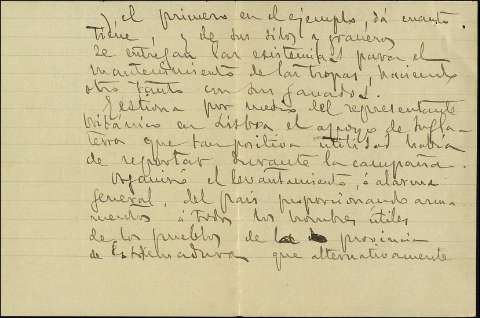 y el primero en el ejemplo, dá cuanto
tiene, y de sus silos y graneros
se entregan las existencias para el
mantenimiento de las tropas, haciendo
otro tanto con sus ganados.
Gestiona por medio del representante
británico en Lisboa el apoyo de Ingla-
terra que tan positiva utilidad había
de reportar durante la campaña.
Organizó el levantamiento, ó alarma
general, del país proporcionando arma-
mentos á todos los hombres útiles
de los pueblos de la provincia
de Extremadura que alternativamente